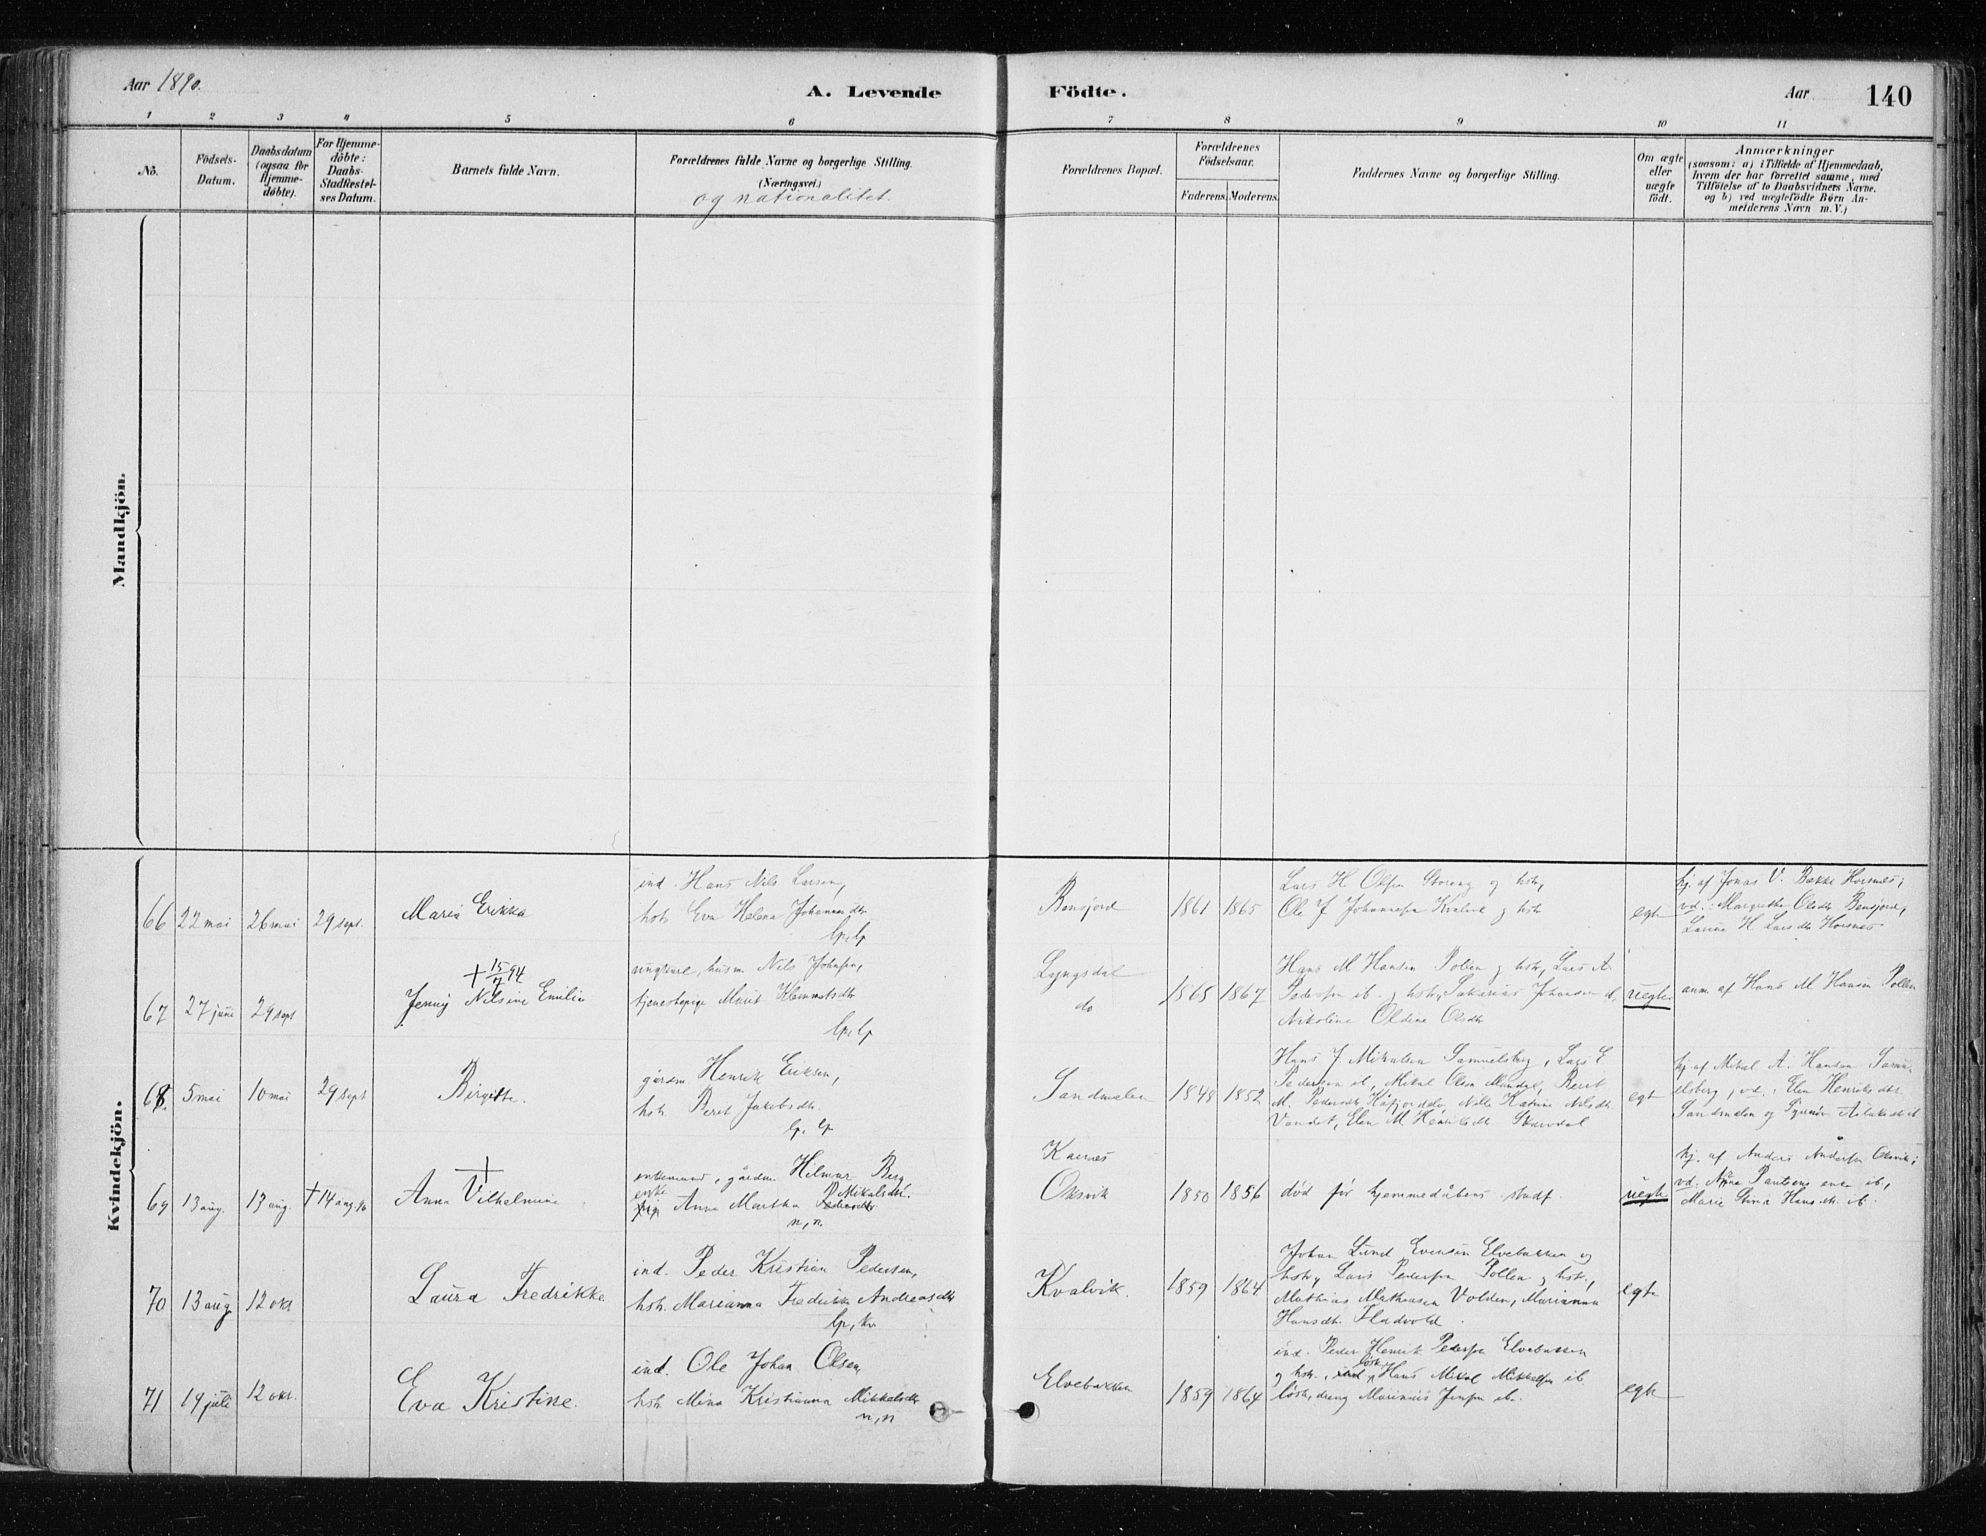 Aar 1890.
A. Levende Födte.
Aar
140
1 2 3 4 5 6 7 8 9 10 11
No.
Födsels-Datum.
Daabsdatum (ogsaa for Hjemme-döbte).
For Hjemme-döbte: Daabs-Stadfæstel-ses Datum.
Barnets fulde Navn.
Forældrenes fulde Navne og borgerlige Stilling.
(Næringsvei.)
og nationalitet.
Forældrenes Bopæl.
Forældrenes Födselsaar.
Faderens. Moderens.
Faddernes Navne og borgerlige Stilling.
Om ægte eller uægte födt.
Anmærkninger
(saasom: a) i Tilfælde af Hjemmedaab,
hvem der har forrettet samme, med
Tilföielse af to Daabsvidners Navne.
og b) ved uægtefödte Børn An-
melderens Navn m.V.)
Mandkjön.
Kvindekjön.
66 22 mai 26 mai 29 sept. Maria Erikka
ind. Hans Nils Larsen,
hstr Eva Helena Johannesdtr
lp, lp
Bensjord 1861 1865
Lars H Olsen Storeng og hstr,
Ole J Johannesen Kvalvik og hstr
egte
hj. af Jonas V. Bakke Horsnes;
vd.: Margrethe Olsdtr Bensjord,
Larsdtr Horsnes
67 27 juni 29 sept
+ 15/7 94
Jenny Nilsine Emilie
ungkarl, husm. Nils Johnsen,
tjenestepige Marit Klemmetsdtr
lp, lp
Lyngsdal
do
1865 1867
Hans M Hansen Pollen og hstr, Lars A.
Pedersen ib. og hstr, Sakarias Johansen ib,
Nikoline Oldine Olsdtr
uegte
anm. af Hans M Hansen Pollen
68. 5 mai 10 mai 29 sept Birgitte.
gårdm Henrik Eriksen,
hstr Beret Jakobsdtr.
lp, lp
Sandmælen 1848 1852
Hans J. Mikalsen Samuelsberg, Lars E
Pedersen ib, Mikal Olsen Mandal, Beret
M. Pedersdtr Kåfjorddalen, Nille Katrine Nilsdtr
Vandet, Elen M Henriksdtr
egte
hj. af Mikal A. Hansen Samu-
elsberg, vd.: Elen Henriksdtr
Sandmælen og
69 13 aug. 13 aug. + 14 aug. 90
+
Anna Vilhelmine
enkemand, gårdm. Hilmar Berg
enke Anna Martha Mikalsdtr.
n, n.
Kavnes
Oksvik
1850 1856
død før hjemmedåbens stadf.
uegte
hj. af Anders Andersen Oksvik;
vd. Anna Paulsens enke ib,
Marie Hansdtr. ib.
70 13 aug 12 okt Laura Fredrikke
ind. Peder Kristian Pedersen,
hstr. Marianna Fredrikke Andreasdtr
lp, kv
Kvalvik. 1859 1864
Johan Lund Evensen Elvebakken og
hstr, Lars Pedersen Pollen og hstr,
Mathias Mathiesen Volden, Marianna
Hansdtr.
egte
71 19 juli 12 okt. Eva Kristine.
ind. Ole Johan Olsen,
hstr Mina Kristianna Mikkelsdtr
n, n
Elvebakken 1859 1864
ind. Peder Henrik Pedersen Elvebakken
og hstr, løsk. Hans Mikal Mikkelsen ib
løsk, dreng Marinius Jensen ib.
egte